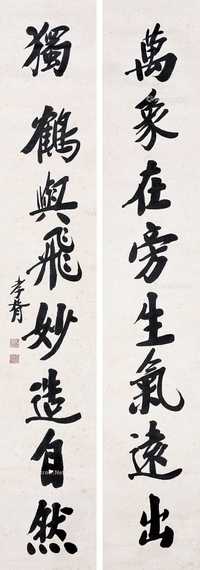 萬象在旁生氣遠出
獨鶴與飛妙造自然
孝胥